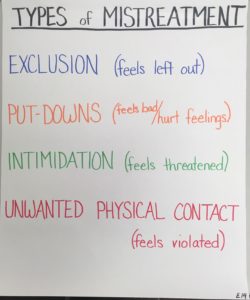 TYPES of MISTREATMENT
EXCLUSION (feels left out)
PUT-DOWNS (feels bad/hurt feelings)
INTIMIDATION (feels threatened)
UNWANTED PHYSICAL CONTACT
(feels violated)